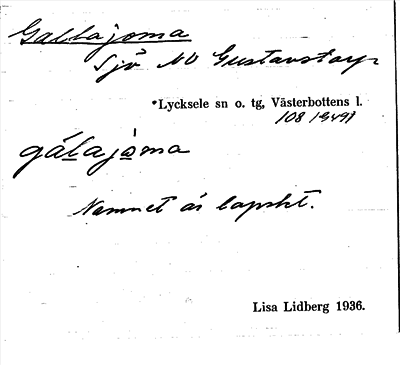 Gallajoma
Sjö NO Gustavstorp
*Lycksele sn o. tg, Västerbottens l.
gálajòma
Namnet är lapskt.
Lisa Lidberg 1936.